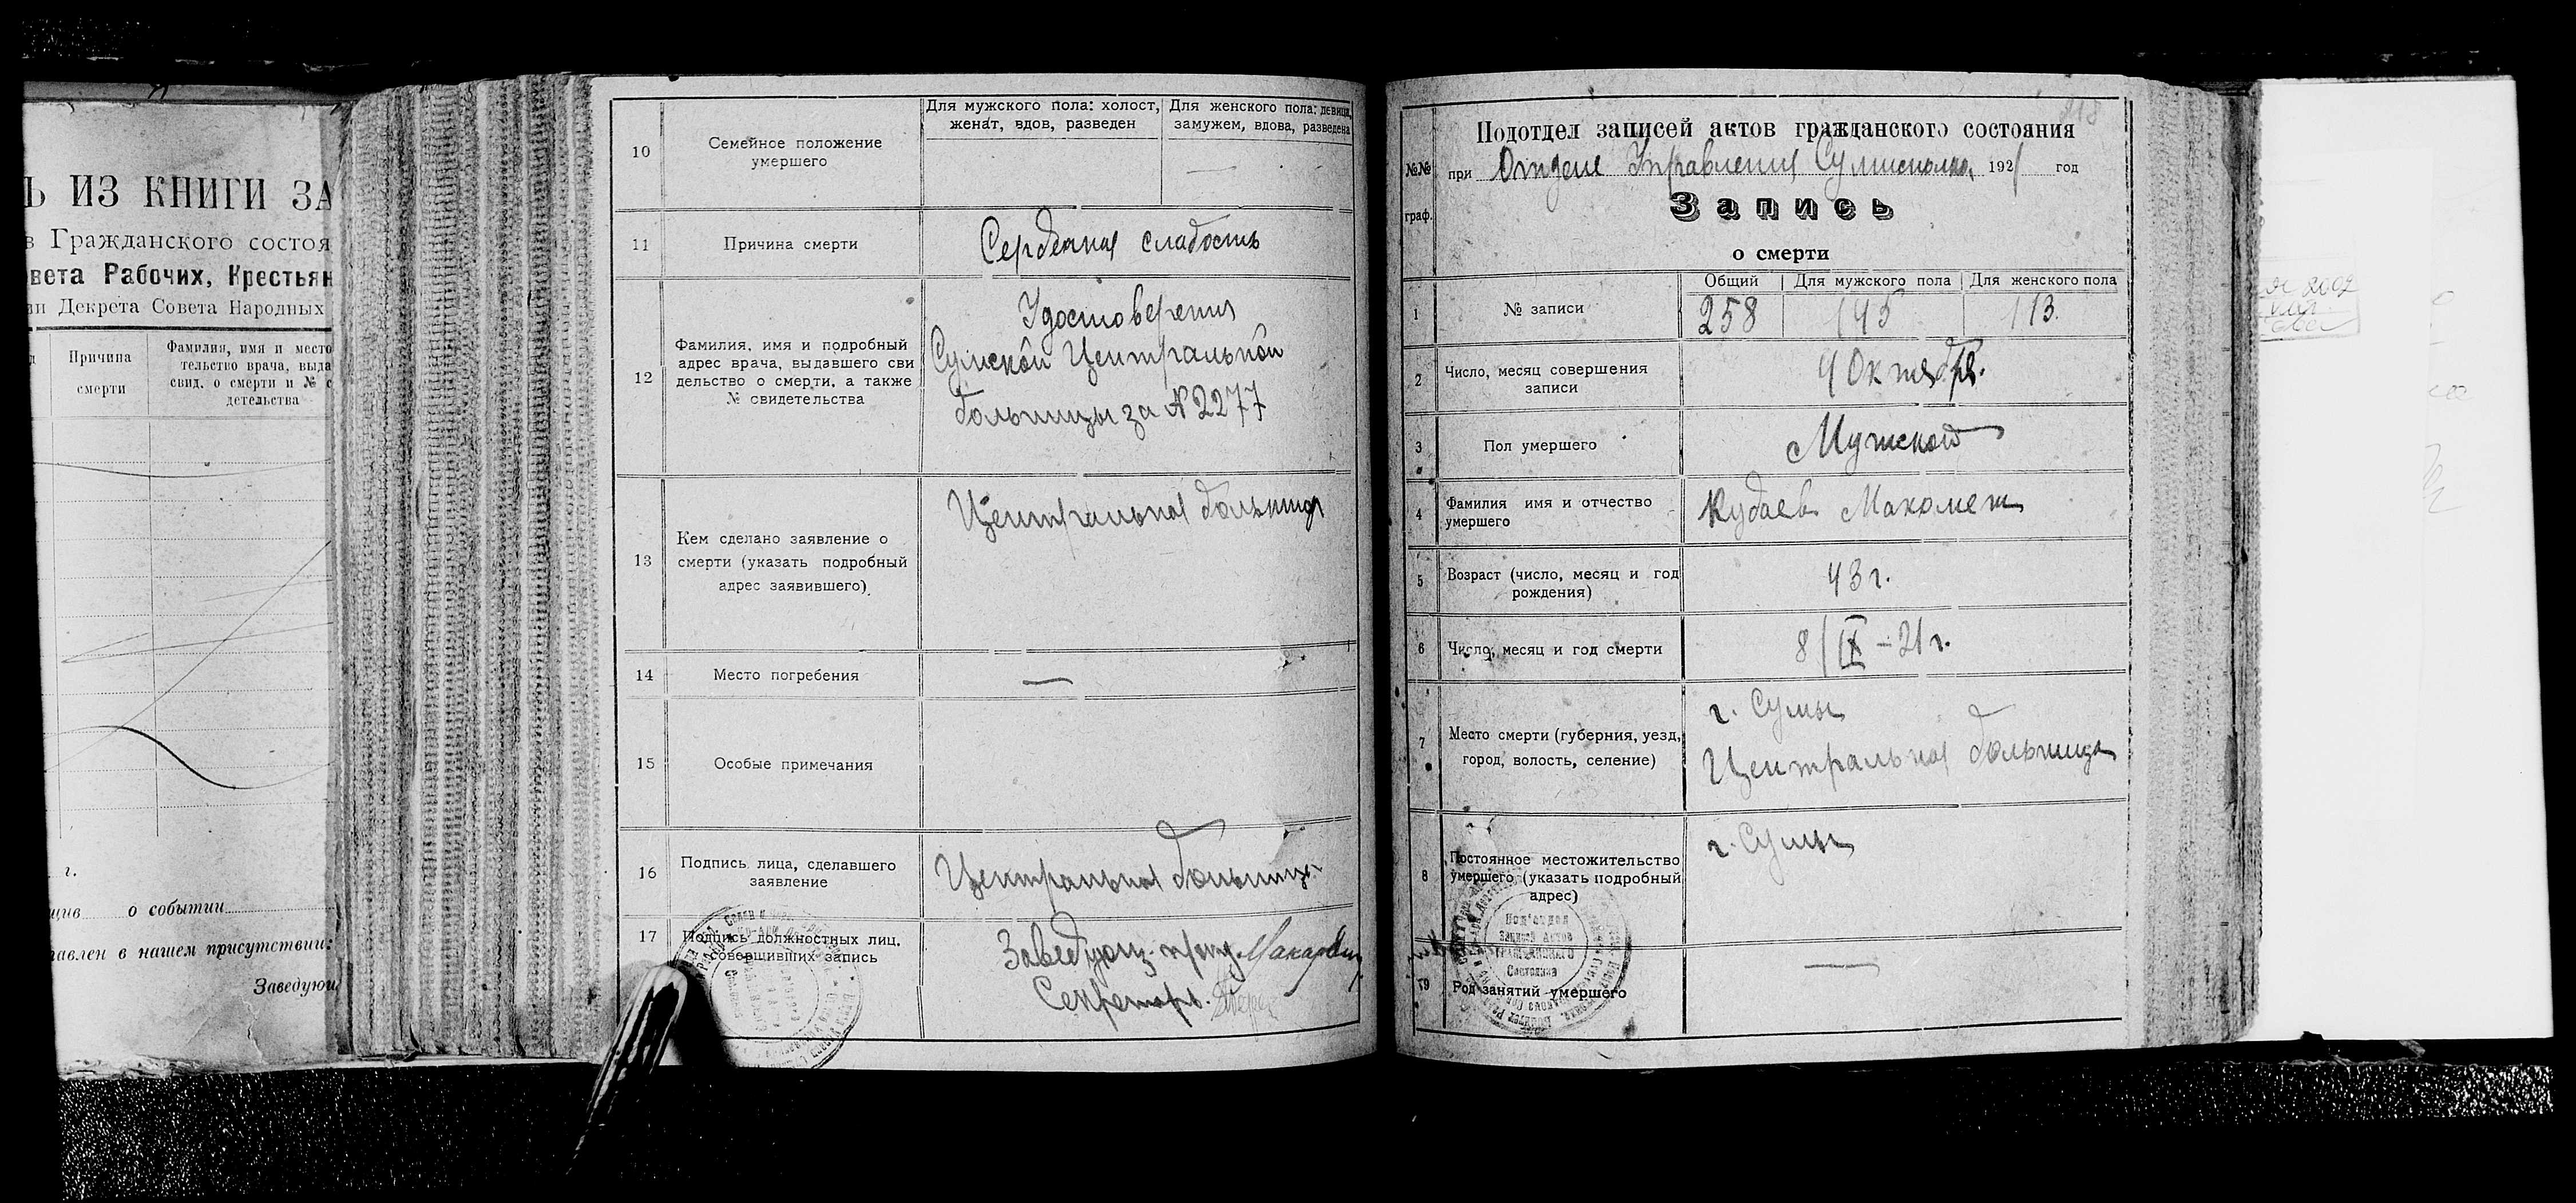 Ь ИЗ КНИГИ ЗА
в Гражданского состоя
вета Рабочих, Крестьян
ии Декрета Совета Народных
Причина
смерти
Фамилия, имя и место
тельство врача, выда
свид. о смерти и № с
детельства
г.
щив о событии
тавлен в нашем присутствии:
Заведую
10
Семейное положение
умершего
Для мужского пола: холост,
женат, вдов, разведен
Для женского пола: девица,
замужем, вдова, разведена
—
11
Причина смерти
Сердечная слабость
12
Фамилия, имя и подробный
адрес врача, выдавшего сви
дельство о смерти, а также
№ свидетельства
Удостоверения
Сумской Центральной
больницы за № 2277
13
Кем сделано заявление о
смерти (указать подробный
адрес заявившего)
Центральная больница
14
Место погребения
—
15
Особые примечания
16
Подпись лица, сделавшего
заявление
Центральная больница
17
Подпись должностных лиц,
совершивших запись
Заведующ.
Секретарь.
№№
граф.
Подотдел записей актов гражданского состояния
при Отделе Управления Сумисполкома 1921 год
Запись
о смерти
1
№ записи
Общий
Для мужского пола
Для женского пола
258
145
113
2
Число, месяц совершения
записи
4 Октября.
3
Пол умершего
Мужской
4
Фамилия имя и отчество
умершего
Кудаев Макомет
5
Возраст (число, месяц и год
рождения)
43 г.
6
Число, месяц и год смерти
8/IX – 21 г.
7
Место смерти (губерния, уезд,
город, волость, селение)
г. Сумы
Центральная больница
8
Постоянное местожительство
умершего (указать подробный
адрес)
г. Сумы
Подотдел
Записей Актов
Гражданского
Состояния
9
Род занятий умершего
—